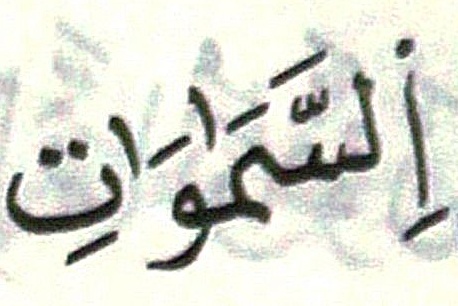 اِ۬لسَّمَٰوَٰتِ